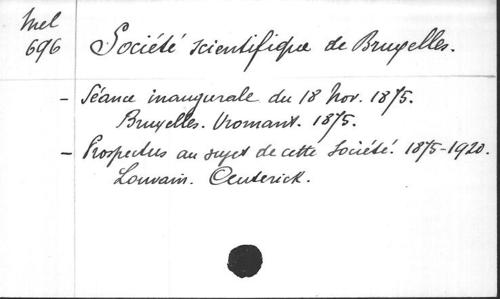 Mel
696
Société scientifique de Bruxelles.
- Séance inaugurale du 18 Nov. 1875.
Bruxelles. Vromant. 1875.
- Prospectus au sujet de cette Société. 1875-1920.
Louvain. Ceuterick.